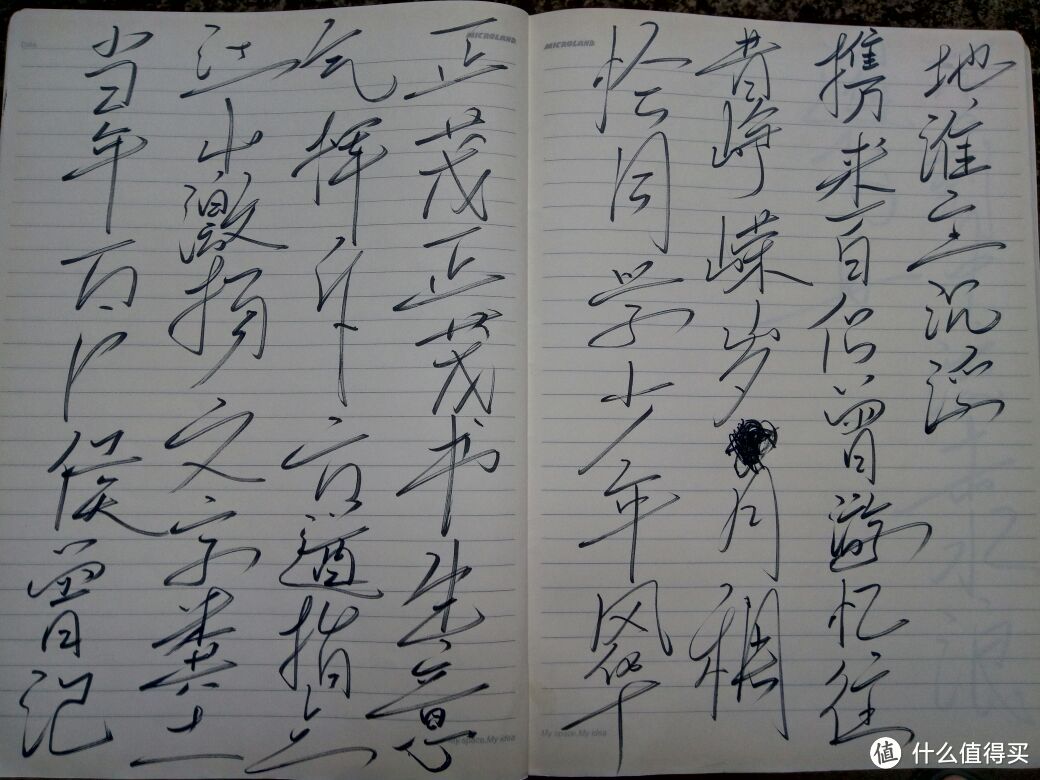 地谁主沉浮
携来百侣曾游忆往
昔峥嵘岁月稠
恰同学少年风华
正茂正茂书生意
气挥斥方遒指点
江山激扬文字粪土
当年万户侯曾记
MICROLAND
MICROLAND
Date
My space.My idea
My space.My idea
值 什么值得买